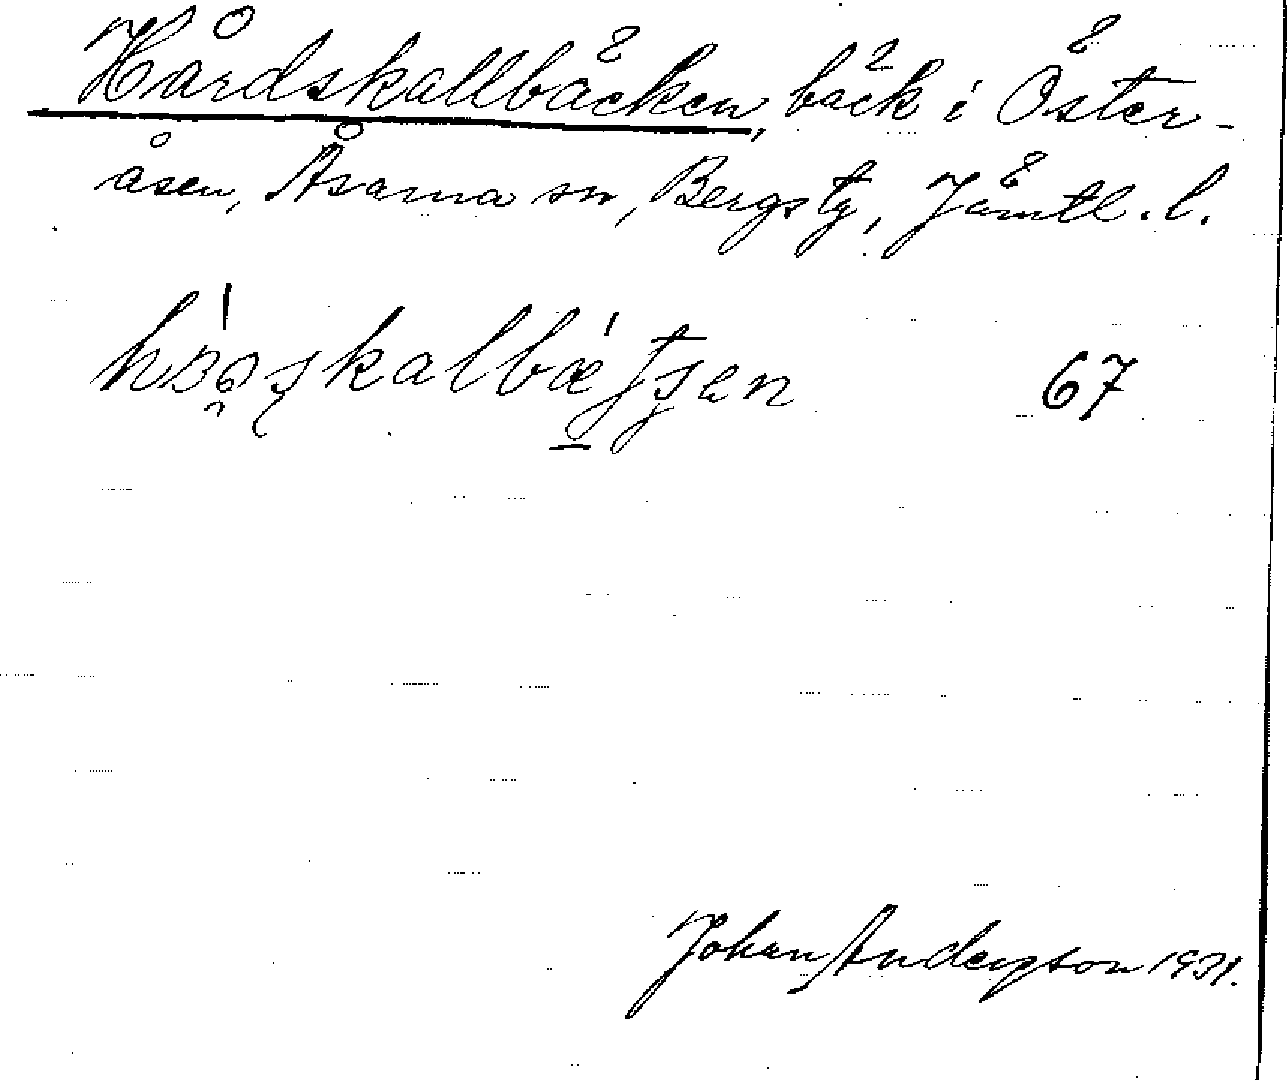 Hårdskallbäcken, bäck i Öster-
åsen, Åsarna sn, Bergs tg, Jämtl. l.
67
Johan Anderson 1931.